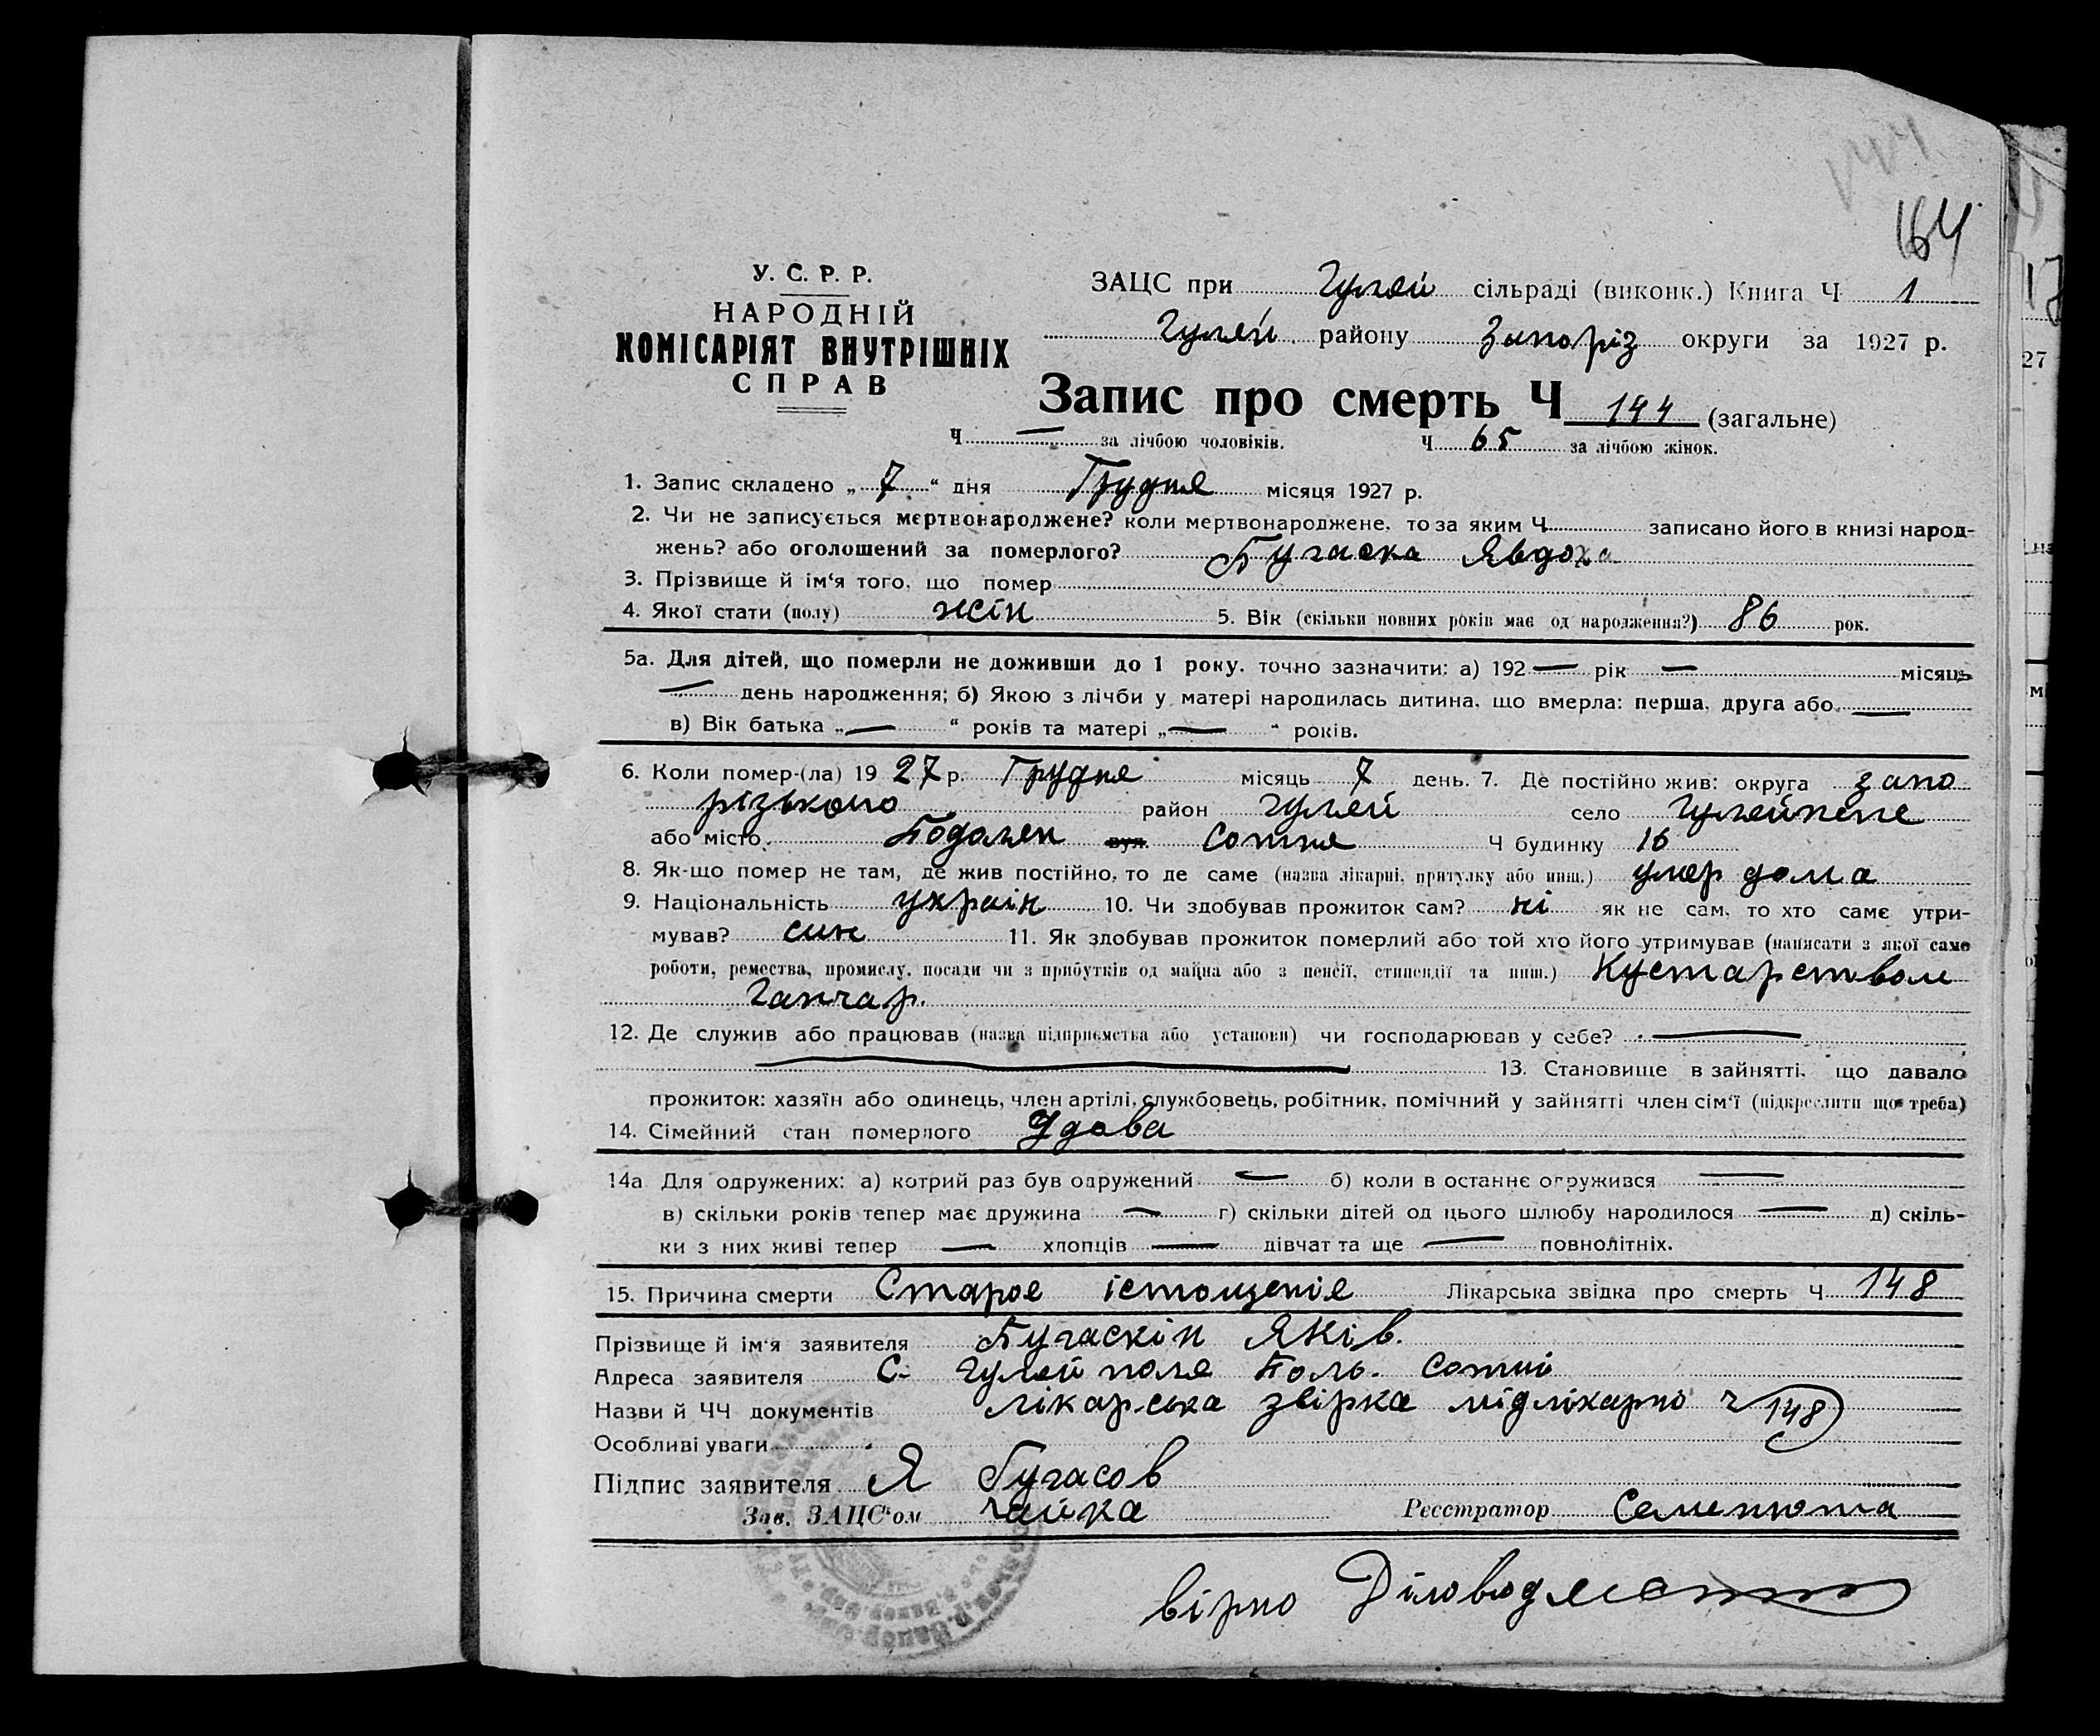 144
164
У. С. Р. Р.
НАРОДНІЙ
КОМІСАРІЯТ ВНУТРІШНІХ
СПРАВ
ЗАЦС при Гуляй сільраді (виконк.) Книга Ч 1
Гуляй району Запоріз округи за 1927 р.
Запис про смерть Ч 144 (загальне)
Ч — за лічбою чоловіків. Ч 65 за лічбою жінок.
1. Запис складено „ 7 “ дня Грудня місяця 1927 р.
2. Чи не записується мертвонароджене? коли мертвонароджене, то за яким Ч записано його в книзі народ-
жень? або оголошений за померлого? Бугаска Явдоха
3. Прізвище й ім‘я того, що помер
4. Якої стати (полу) жін 5. Вік (скільки повних років має од народження?) 86 рок.
5а. Для дітей, що померли не доживши до 1 року, точно зазначити: а) 192 — рік — місяць
— день народження; б) Якою з лічби у матері народилась дитина, що вмерла: перша, друга або —
в) Вік батька „ — “ років та матері „ — “ років.
6. Коли помер-(ла) 19 27 р. Грудня місяць 7 день. 7. Де постійно жив: округа запо
різького район Гуляй село Гуляйпепе
або місто Подолян вул. Сотня Ч будинку 16
8. Як-що помер не там, де жив постійно, то де саме (назва лікарні, притулку або инш.) умер дома
9. Національність україн 10. Чи здобував прожиток сам? ні як не сам, то хто саме утри-
мував? син 11. Як здобував прожиток померлий або той хто його утримував (написати з якої саме
роботи, ремества, промислу, посади чи з прибутків од майна або з пенсії, стипендії та инш.) Кустарством
Ганчар.
12. Де служив або працював (назва підприємства або установи) чи господарював у себе? —
— 13. Становище в зайнятті, що давало
прожиток: хазяїн або одинець, член артілі, службовець, робітник, помічний у зайнятті член сім‘ї (підкреслити що треба)
14. Сімейний стан померлого Удова
14а Для одружених: а) котрий раз був одружений — б) коли в останнє одружився —
в) скільки років тепер має дружина — г) скільки дітей од цього шлюбу народилося — д) скіль-
ки з них живі тепер — хлопців — дівчат та ще — повнолітніх.
15. Причина смерти Старое істощеніе Лікарська звідка про смерть Ч 148
Прізвище й ім‘я заявителя Бугаскін Яків.
Адреса заявителя С. Гуляй поля Поль. Сотні
Назви й ЧЧ документів лікарська звірка ч 148
Особливі уваги
Підпис заявителя Я Бугасов
Зав. ЗАЦС‘ом Чайка Реєстратор Семенюта
вірно Діловод